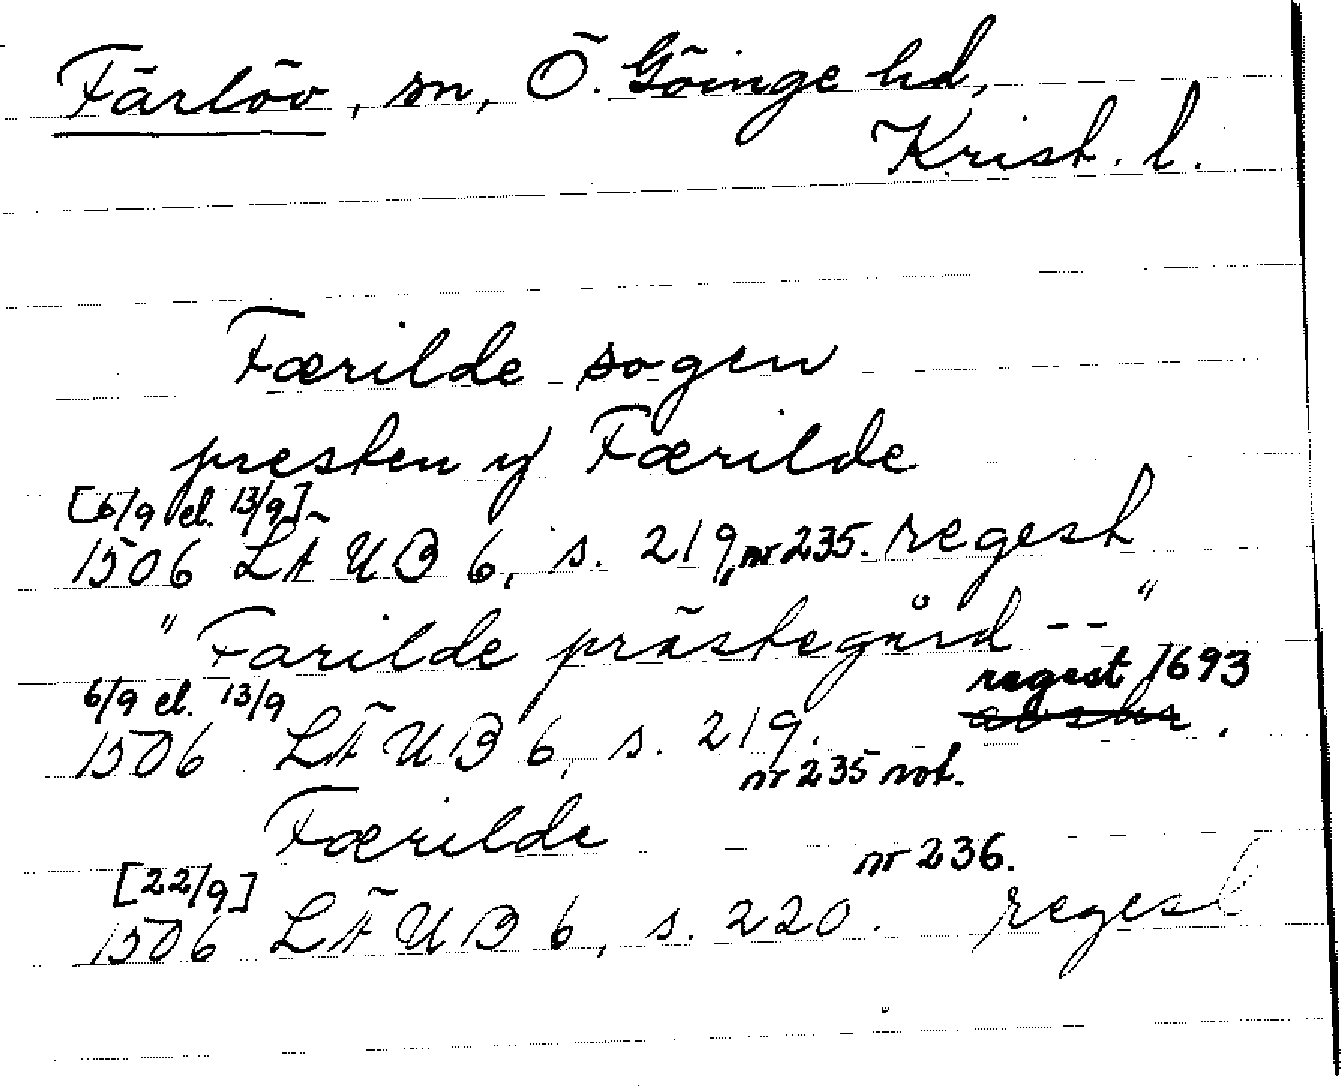 Färlöv, sn, Ö. Göinge hd,
Krist. l.
Færilde sogen
presten y Færilde
[6/9 el. 13/9]
1506 LÄUB 6, s. 219, nr 235. regest
"Farilde prästegård -- "
6/9 el. 13/9 regest 1693
1506 LÄUB 6, s. 219.
nr 235 not.
Færilde
[22/9] nr 236.
1506 LÄUB 6, s. 220. regest